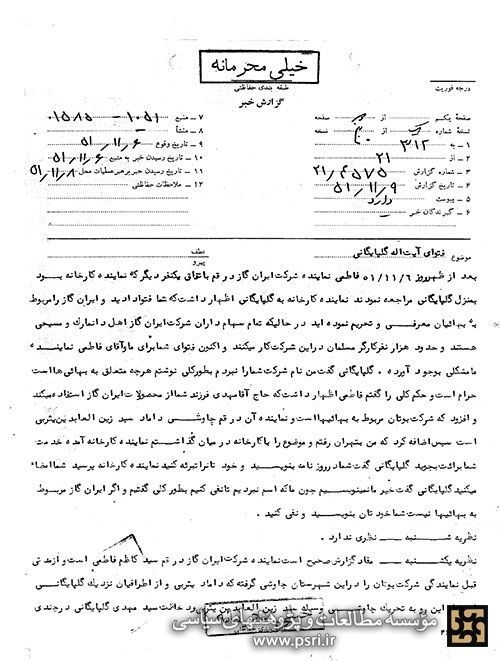 خیلی محرمانه
درجه فوریت
طبقه بندی حفاظتی
گزارش خبر
صفحه یکم از صفحه
نسخه شماره از نسخه
۱ - به ۳۱۲
۲ - از ۲۱
۳ - شماره گزارش
۴ - تاریخ گزارش ۵۱/۱۱/۹
۵ - پیوست دارد
۶ - گیرندگان خبر
۷ - منبع
۸ - منشأ
۹ - تاریخ وقوع ۵۱/۱۱/۶
۱۰ - تاریخ رسیدن خبر به منبع ۵۱/۱۱/۶
۱۱ - تاریخ رسیدن خبر برهبر عملیات محل ۵۱/۱۱/۸
۱۲ - ملاحظات حفاظتی
موضوع فتوای آیت اله گلپایگانی
عطف
پیرو
بعد از ظهر روز ۵۱/۱۱/۶ فاطمی نماینده شرکت ایران گاز در قم باتفاق یکنفر دیگر که نماینده کارخانه بود
بمنزل گلپایگانی مراجعه نمودند نماینده کارخانه به گلپایگانی اظهار داشت که شما فتوا دادید و ایران گاز را مربوط
به بهائیان معرفی و تحریم نموده اید در حالیکه تمام سهام داران شرکت ایران گاز اهل دانمارک و مسیحی
هستند و حدود هزار نفر کارگر مسلمان در این شرکت کار میکنند و اکنون فتوای شما برای ما و آقای فاطمی نماینده
ما مشکلی بوجود آورده . گلپایگانی گفت من نام شرکت شما را ننوشتم بطور کلی نوشتم هرچه متعلق به بهائی ها است
حرام است و حکم کلی را گفتم فاطمی اظهار داشت که حاج آقا مهدی فرزند شما از محصولات ایران گاز استفاده میکند
و افزود که شرکت بوتان مربوط به بهائیها است و نماینده آن در قم چاوشی داماد سید زین العابدین یثربی
است سپس اضافه کرد که من بتهران رفتم و موضوع را با کارخانه در میان گذاشتم نماینده کارخانه آمده خدمت
شما برائت بجوید گلپایگانی گفت شما در روزنامه بنویسید و خود را تبرئه کنید نماینده کارخانه پرسید شما امضاء
میکنید گلپایگانی گفت خیر ما نمینویسیم چون ما که اسم نبردیم تا نفی کنیم بطور کلی گفتیم و اگر ایران گاز مربوط
به بهائیها نیست شما خودتان بنویسید و نفی کنید .
نظریه شنبه - نظری ندارد .
نظریه یکشنبه - مفاد گزارش صحیح است نماینده شرکت ایران گاز در قم سید کاظم فاطمی است و از مدتی
قبل نمایندگی شرکت بوتان را در این شهرستان چاوشی گرفته که داماد یثربی و از اطرافیان نزدیک گلپایگانی
این رو به تحریک چاوشی و سیله سید زین العابدین یثربی و دخالت سید مهدی گلپایگانی در چندی
مؤسسه مطالعات و پژوهشهای سیاسی
www.psri.ir